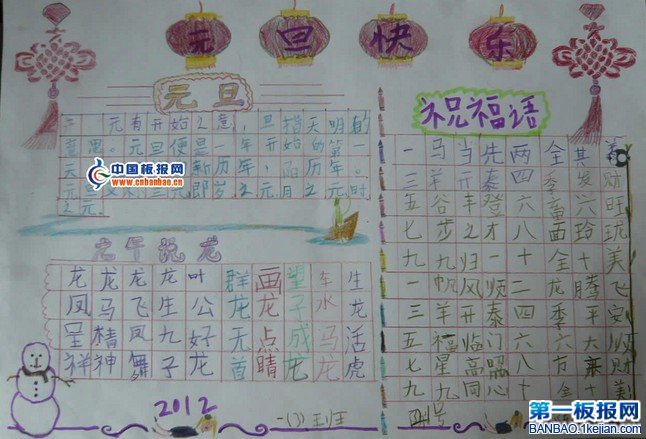 元旦快乐
元旦
元有开始之意,旦指天明的
意思。元旦便是一年开始的第一
天
新历年,阳历年。
即岁之元月之元时
之元。
中国板报网
www.cnbanbao.cn
龙年说龙
龙龙龙龙叶群画望车生
凤马飞生公龙龙子水龙
呈精凤九好无点成马活
祥神舞子龙首睛龙龙虎
2012
一(3)班
祝福语
一马当先两全其美
三羊开泰四季发财
五谷丰登六畜兴旺
七步之才八面玲珑
九九归一十全十美
一帆风顺二龙腾飞
三羊开泰四季平安
五福临门六六大顺
七星高照八方来财
九九同心十全十美
第一板报网
BANBAO.1kejian.com